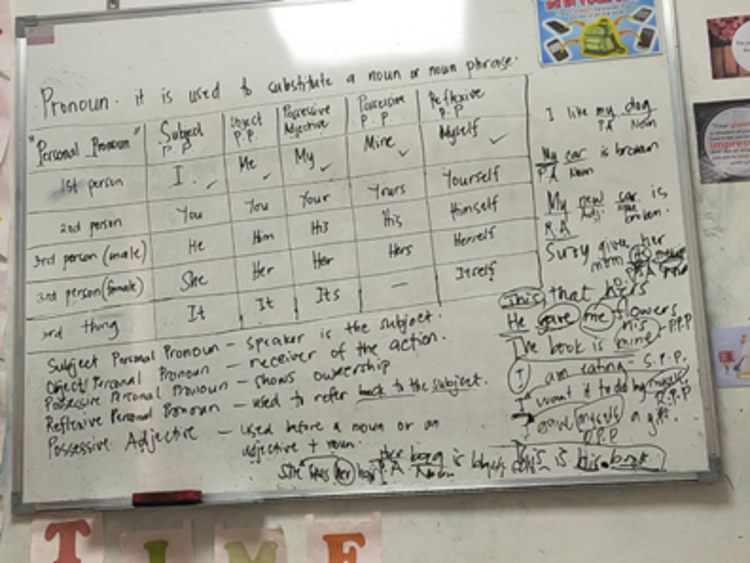 Pronoun. it is used to substitute a noun or noun phrase.
"Personal Pronoun" Subject P.P Object P.P. Possessive Adjective Possessive P.P Reflexive P.P
1st person I. ✓ Me ✓ My ✓ Mine ✓ Myself ✓
2nd person You You Your Yours Yourself
3rd person (male) He Him His His Himself
3rd person (female) She Her Her Hers Herself
3rd thing It It Its — Itself
Subject Personal Pronoun - speaker is the subject.
Object Personal Pronoun - receiver of the action.
Possessive Personal Pronoun - shows ownership
Reflexive Personal Pronoun - used to refer back to the subject.
Possessive Adjective - used before a noun or an
adjective + noun.
I like my dog
P.A Noun
My car is broken
P.A Noun
My new car is
Adj. broken.
Suzy gives her
mom
This that
He gave me flowers
his
The book is mine - P.P.P
I am eating - S.P.P.
I want it to do by myself
R.P.P
myself a gift.
She her
P.A Noun is
is his book
TIME